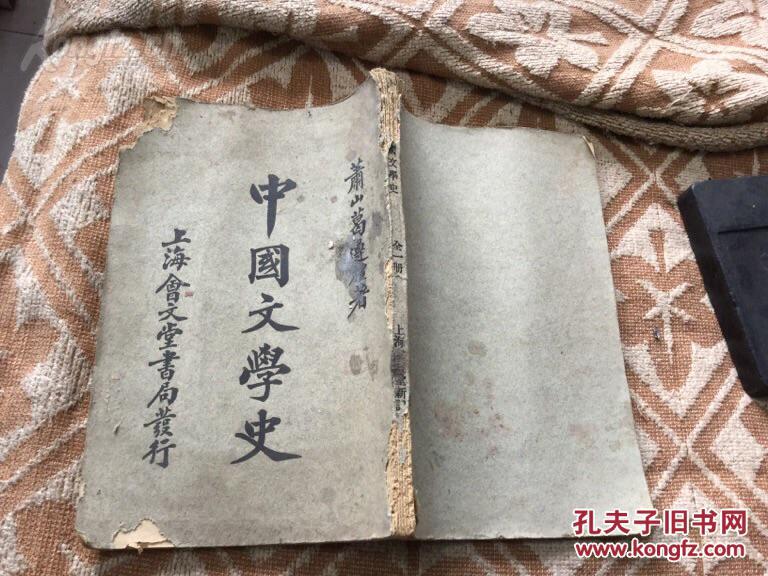 蕭山葛遵禮著
中國文學史
上海會文堂書局發行
國文學史
全一冊
上海
堂新
孔夫子旧书网
www.kongfz.com